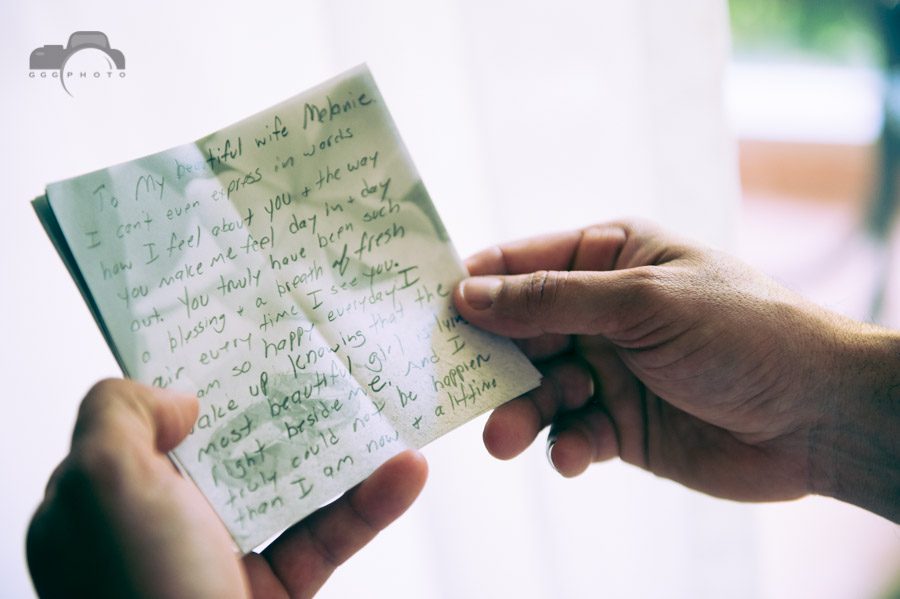 GGG PHOTO
To My beautiful wife Melanie.
I can't even express in words
how I feel about you + the way
you make me feel day in + day
out. You truly have been such
a blessing + a breath of fresh
air every time I see you.
I am so happy everyday I
wake up knowing that the
most beautiful girl is lying
right beside me. And I
truly could not be happier
than I am now + a lifetime